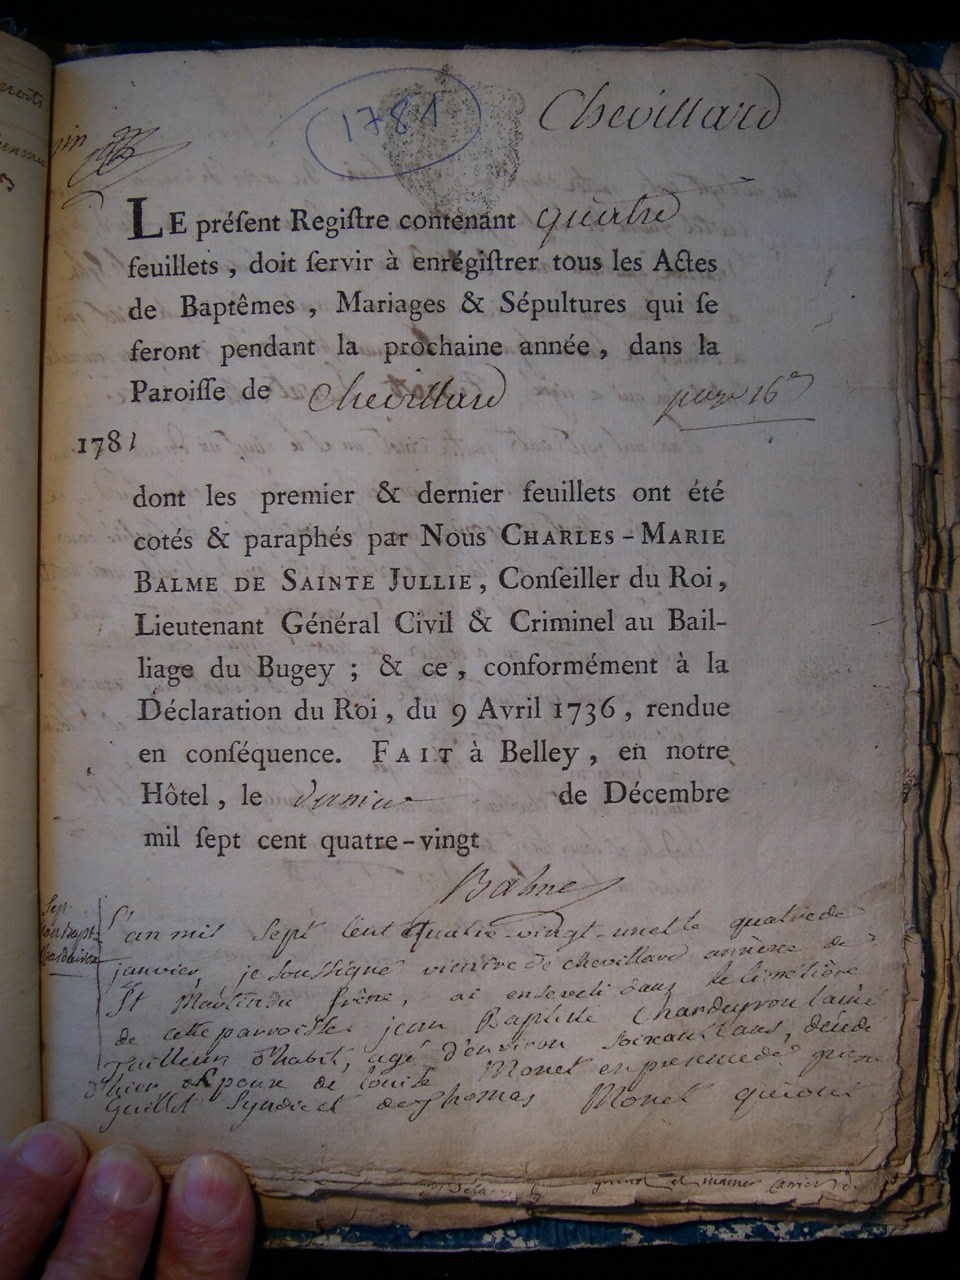 1781
Chevillard
LE préſent Regiſtre contenant quatre
feuillets, doit ſervir à enrégiſtrer tous les Actes
de Baptêmes, Mariages & Sépultures qui ſe
feront pendant la prochaine année, dans la
Paroiſſe de Chevillard
1781
dont les premier & dernier feuillets ont été
cotés & paraphés par Nous CHARLES-MARIE
BALME DE SAINTE JULLIE, Conſeiller du Roi,
Lieutenant Général Civil & Criminel au Bail-
liage du Bugey ; & ce, conformément à la
Déclaration du Roi, du 9 Avril 1736, rendue
en conſéquence. FAIT à Belley, en notre
Hôtel, le dernier de Décembre
mil ſept cent quatre-vingt
Balme
Sep.
Jean Bapt.
L'an mil Sept Cent Quatre-vingt-un et le quatre de
janvier, je Soussigné vicaire de chevillard annexe de
St Martin du frêne, ai enseveli dans le cimétière
de cette parroisse jean Baptiste Chardeyron l'ainé
tailleur d'habit, agé d'environ Soixante ans, décédé
d'hier Epoux de Louise Monet en présence de
Guillot Syndic et de Thomas Monet qui ont